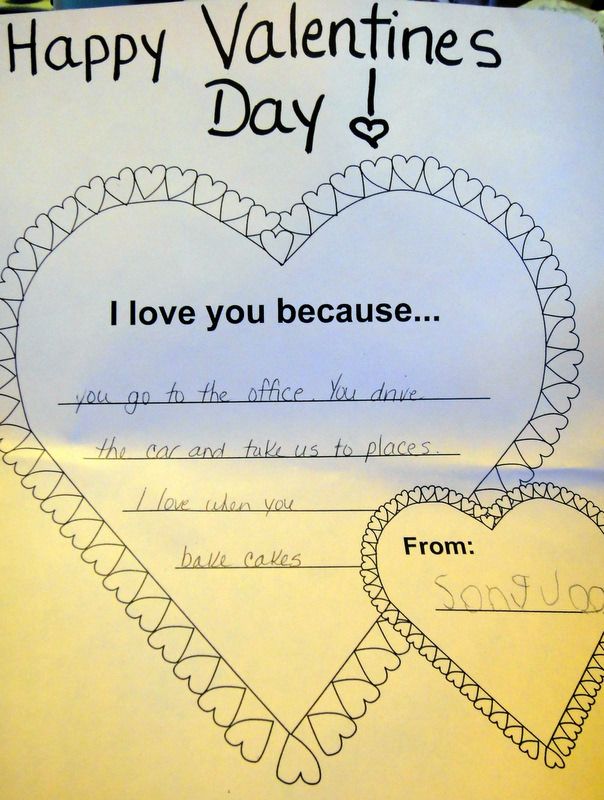 Happy Valentines
Day !
I love you because...
you go to the office. You drive
the car and take us to places.
I love when you
bake cakes
From: